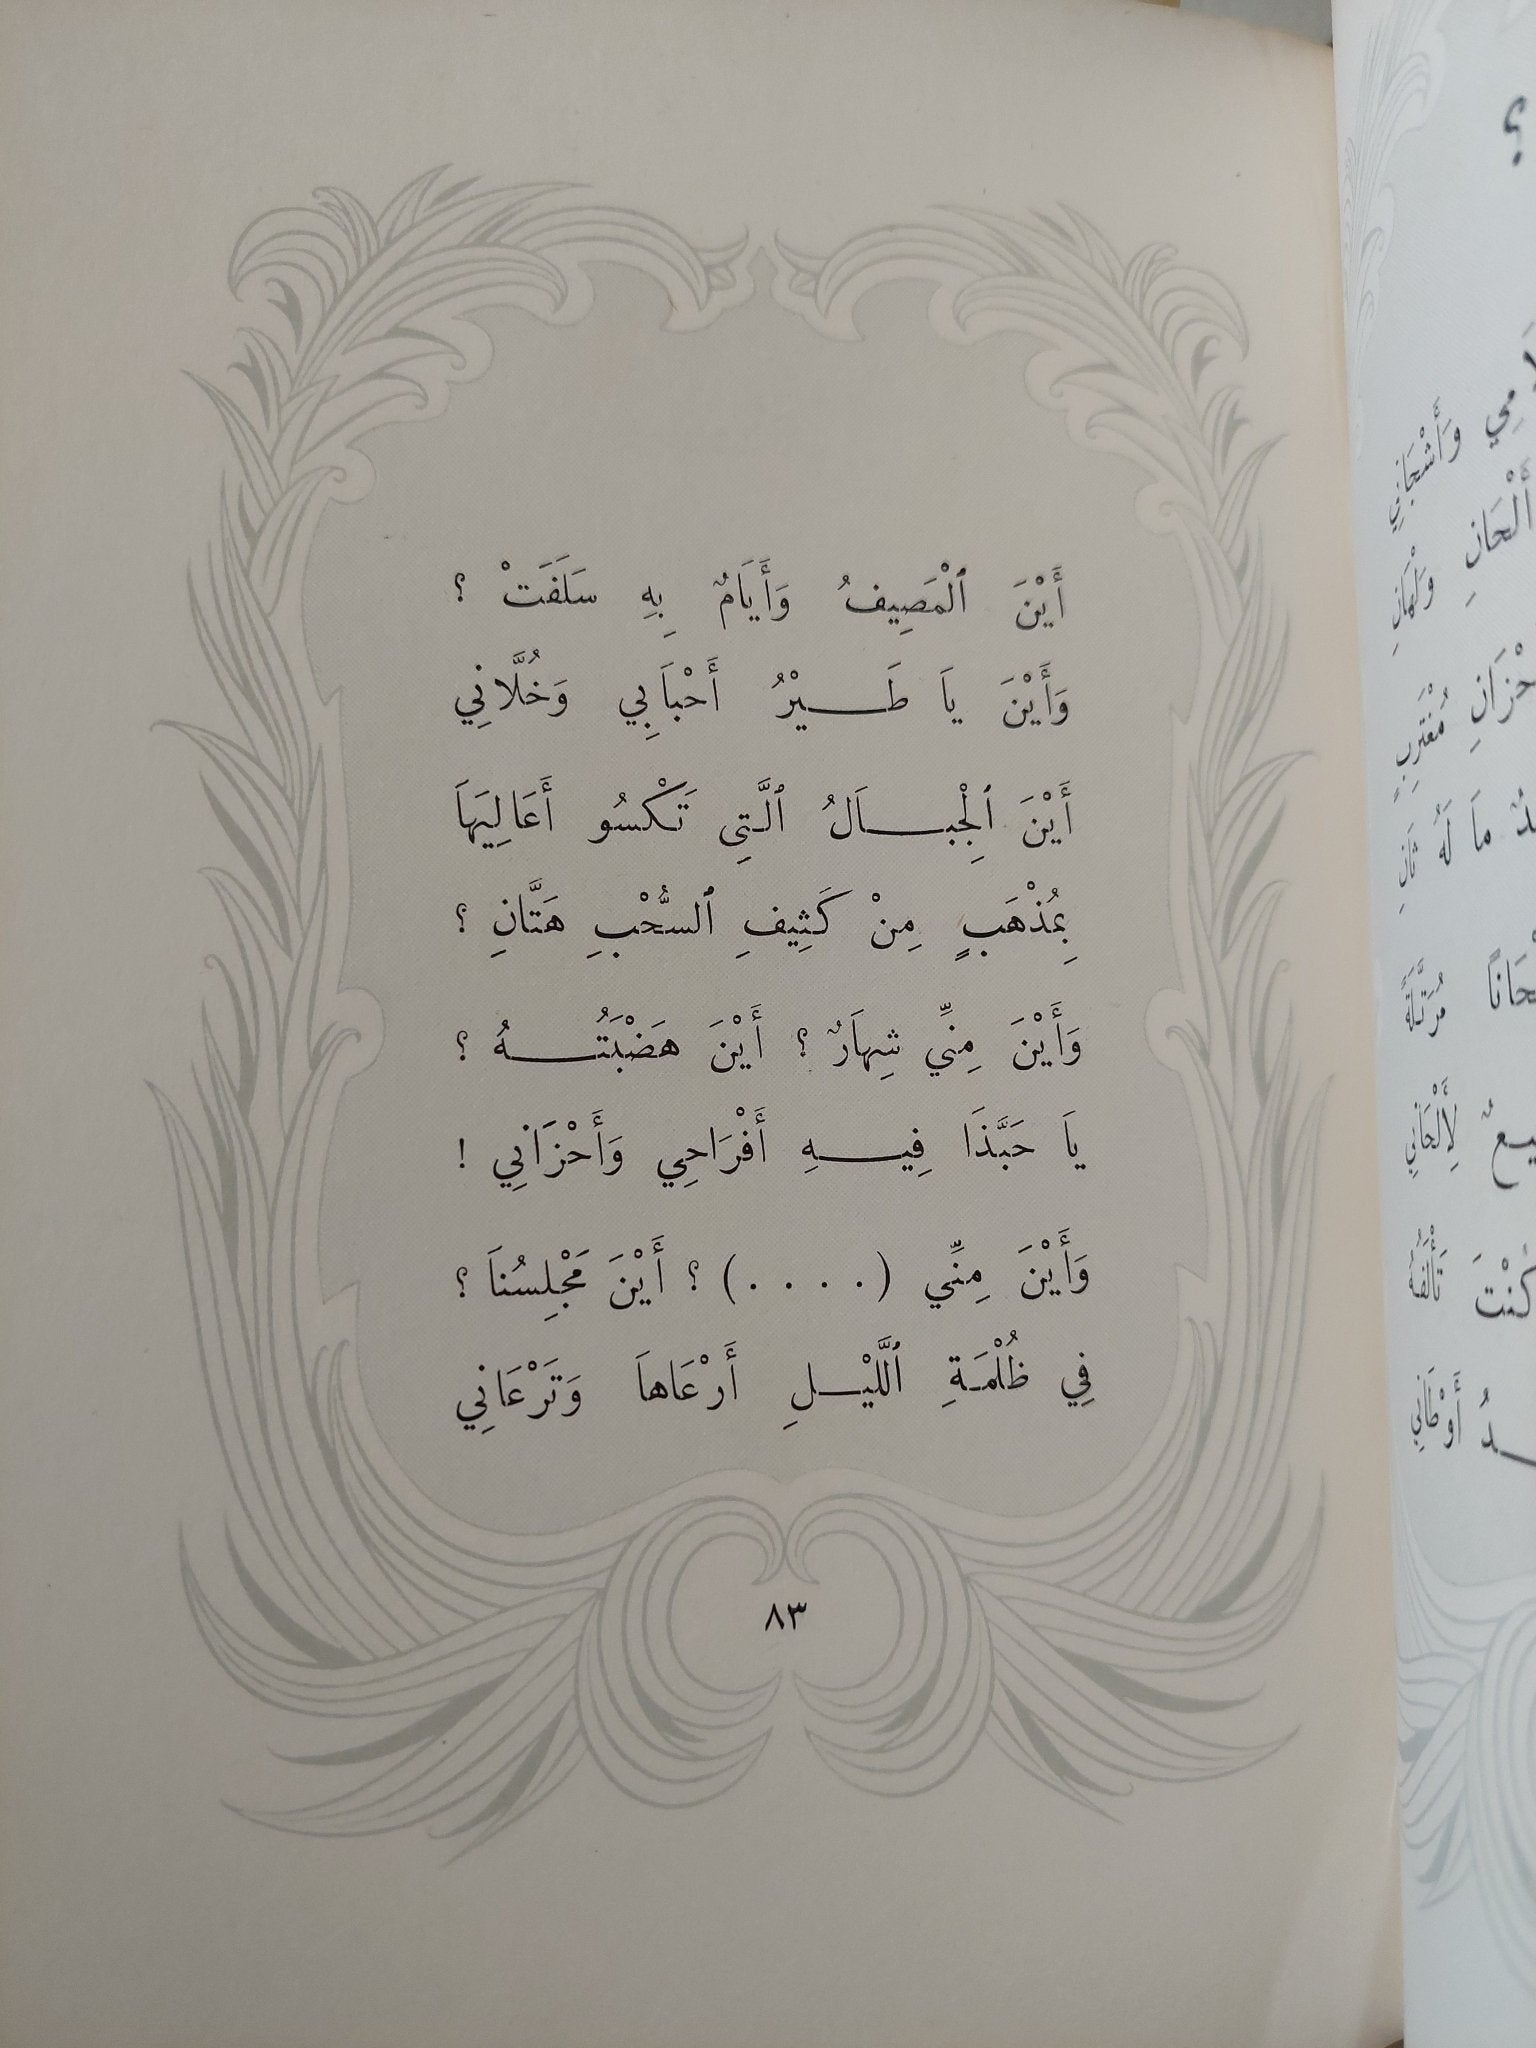 أَيْنَ ٱلْمَصِيفُ وَأَيَامٌ بِهِ سَلَفَتْ ؟
وَأَيْنَ يَا طَــيْرُ أَحْبَابِي وَخُلَّانِي
أَيْنَ ٱلْجِبَــالُ ٱلَّتِي تَكْسُو أَعَالِيَهَا
بِمُذْهَبٍ مِنْ كَثِيفِ ٱلسُّحْبِ هَتَّانِ ؟
وَأَيْنَ مِنِّي شِهَارٌ ؟ أَيْنَ هَضْبَتُــهُ ؟
يَا حَبَّذَا فِيــهِ أَفْرَاحِي وَأَحْزَانِي !
وَأَيْنَ مِنِّي (....) ؟ أَيْنَ مَجْلِسُنَا ؟
فِي ظُلْمَةِ ٱللَّيْــلِ أَرْعَاهَا وَتَرْعَانِي
٨٣
؟
وَأَشْجَانِي
أَلْحَانِ وَلْهَانِ
مُغْتَرِبٍ
مَا لَهُ ثَانِ
مُرَتَّلَةً
لِأَلْحَانِي
كُنْتَ تَأْلَفُهُ
أَوْطَانِي